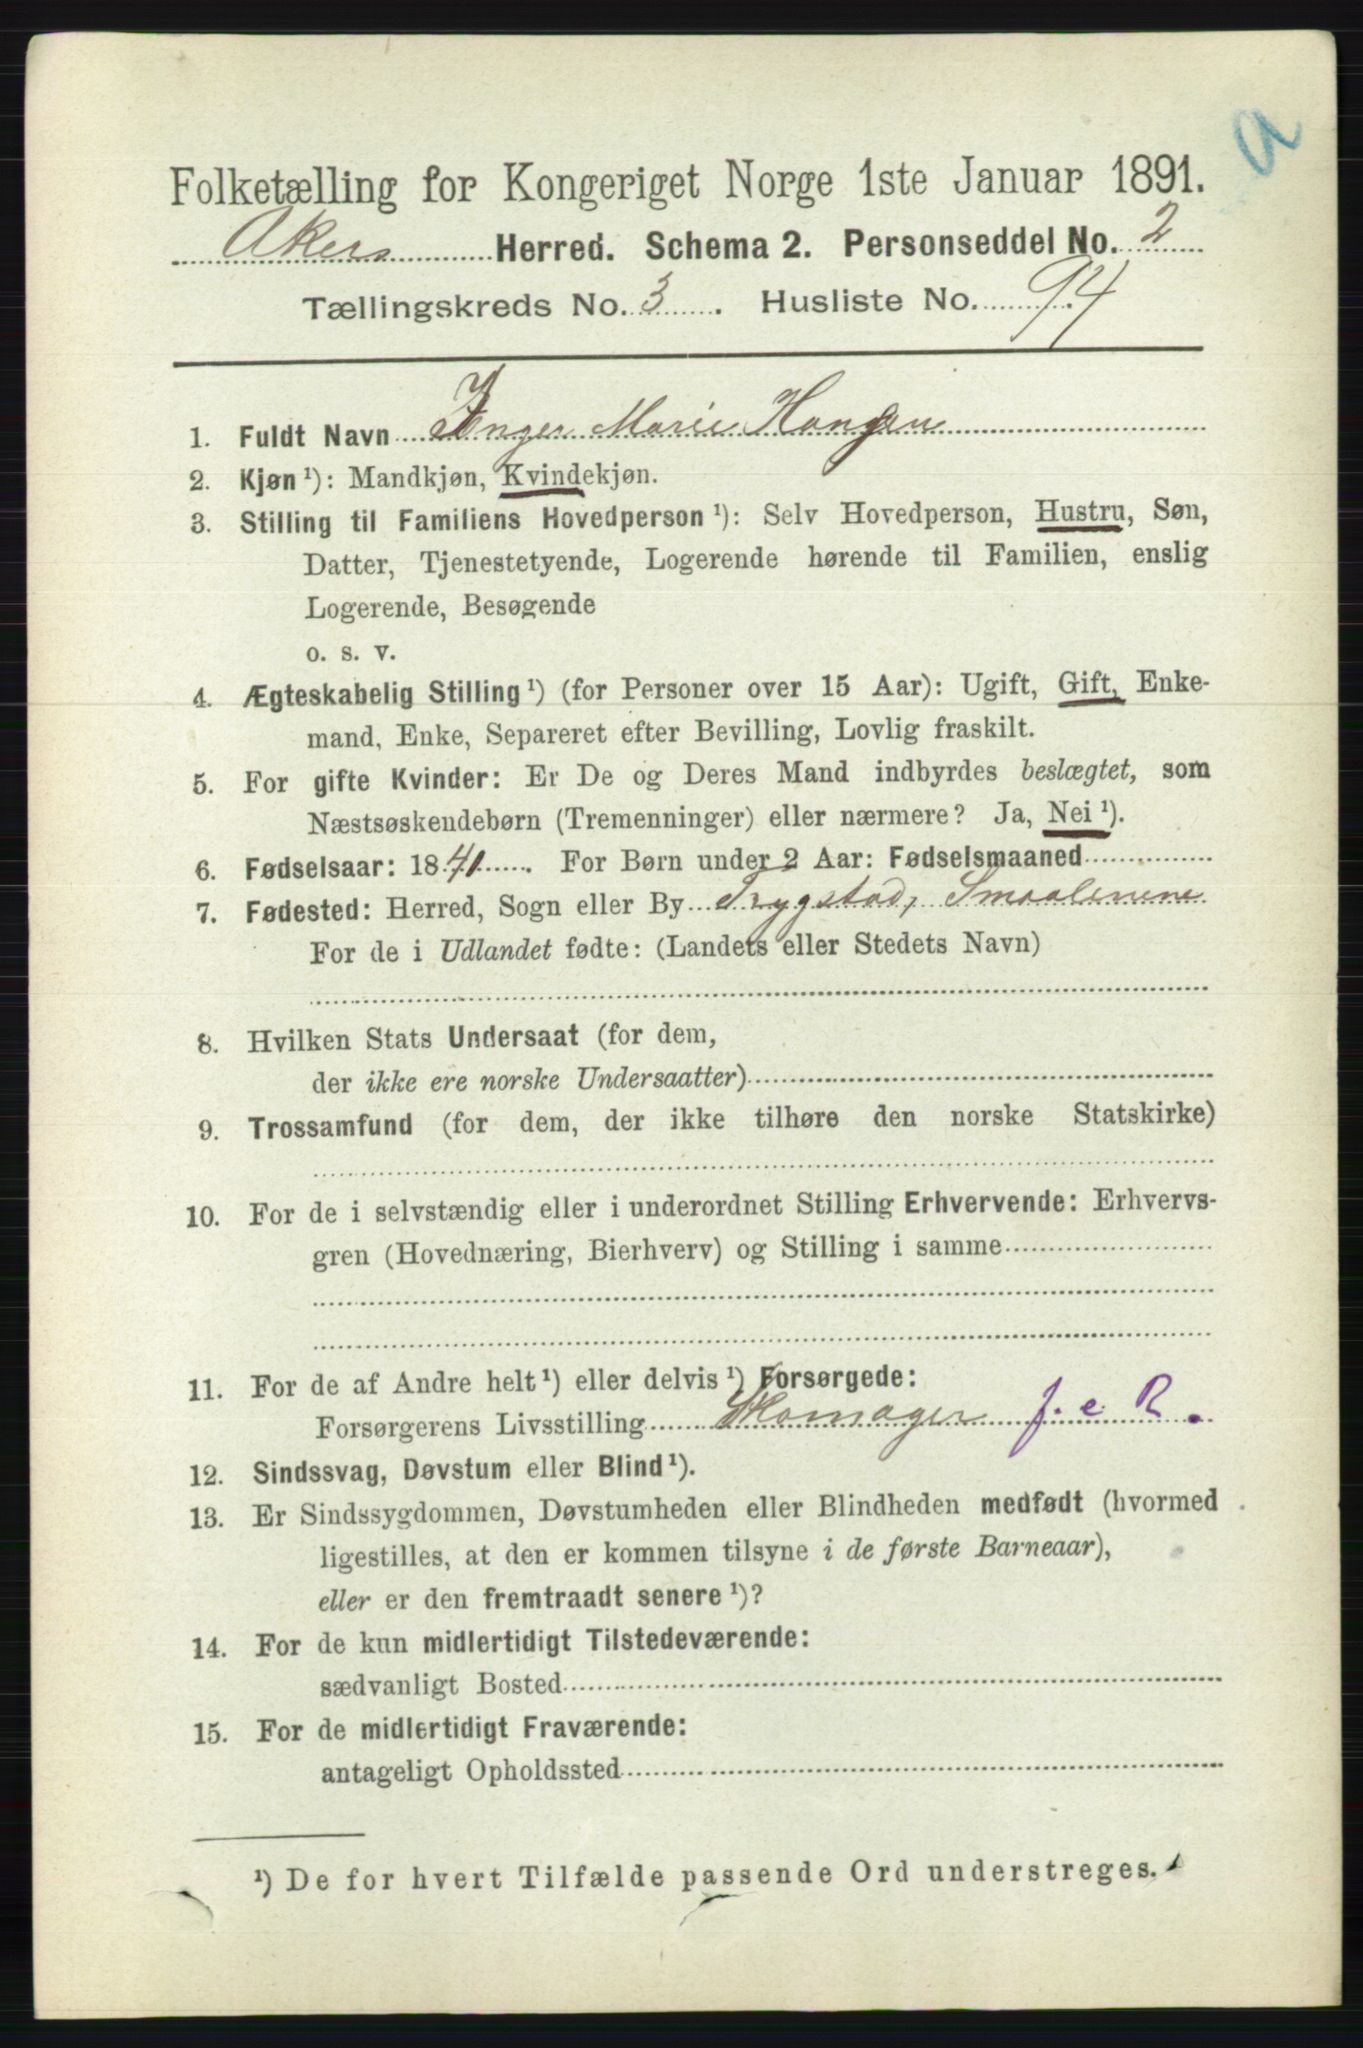 a
Folketælling for Kongeriget Norge 1ste Januar 1891.
Akers Herred. Schema 2. Personseddel No. 2
Tællingskreds No. 3. Husliste No. 94
1. Fuldt Navn Inger Marie Hansen
2. Kjøn ¹): Mandkjøn, Kvindekjøn.
3. Stilling til Familiens Hovedperson ¹): Selv Hovedperson, Hustru, Søn,
Datter, Tjenestetyende, Logerende hørende til Familien, enslig
Logerende, Besøgende
o. s. v.
4. Ægteskabelig Stilling ¹) (for Personer over 15 Aar): Ugift, Gift, Enke-
mand, Enke, Separeret efter Bevilling, Lovlig fraskilt.
5. For gifte Kvinder: Er De og Deres Mand indbyrdes beslægtet, som
Næstsøskendebørn (Tremenninger) eller nærmere? Ja, Nei ¹).
6. Fødselsaar: 1841. For Børn under 2 Aar: Fødselsmaaned
7. Fødested: Herred, Sogn eller By Trygstad, Smaalenene
For de i Udlandet fødte: (Landets eller Stedets Navn)
8. Hvilken Stats Undersaat (for dem,
der ikke ere norske Undersaatter)
9. Trossamfund (for dem, der ikke tilhøre den norske Statskirke)
10. For de i selvstændig eller i underordnet Stilling Erhvervende: Erhvervs-
gren (Hovednæring, Bierhverv) og Stilling i samme
11. For de af Andre helt ¹) eller delvis ¹) Forsørgede:
Forsørgerens Livsstilling Skomager f. e R.
12. Sindssvag, Døvstum eller Blind ¹).
13. Er Sindssygdommen, Døvstumheden eller Blindheden medfødt (hvormed
ligestilles, at den er kommen tilsyne i de første Barneaar),
eller er den fremtraadt senere ¹)?
14. For de kun midlertidigt Tilstedeværende:
sædvanligt Bosted
15. For de midlertidigt Fraværende:
antageligt Opholdssted
¹) De for hvert Tilfælde passende Ord understreges.